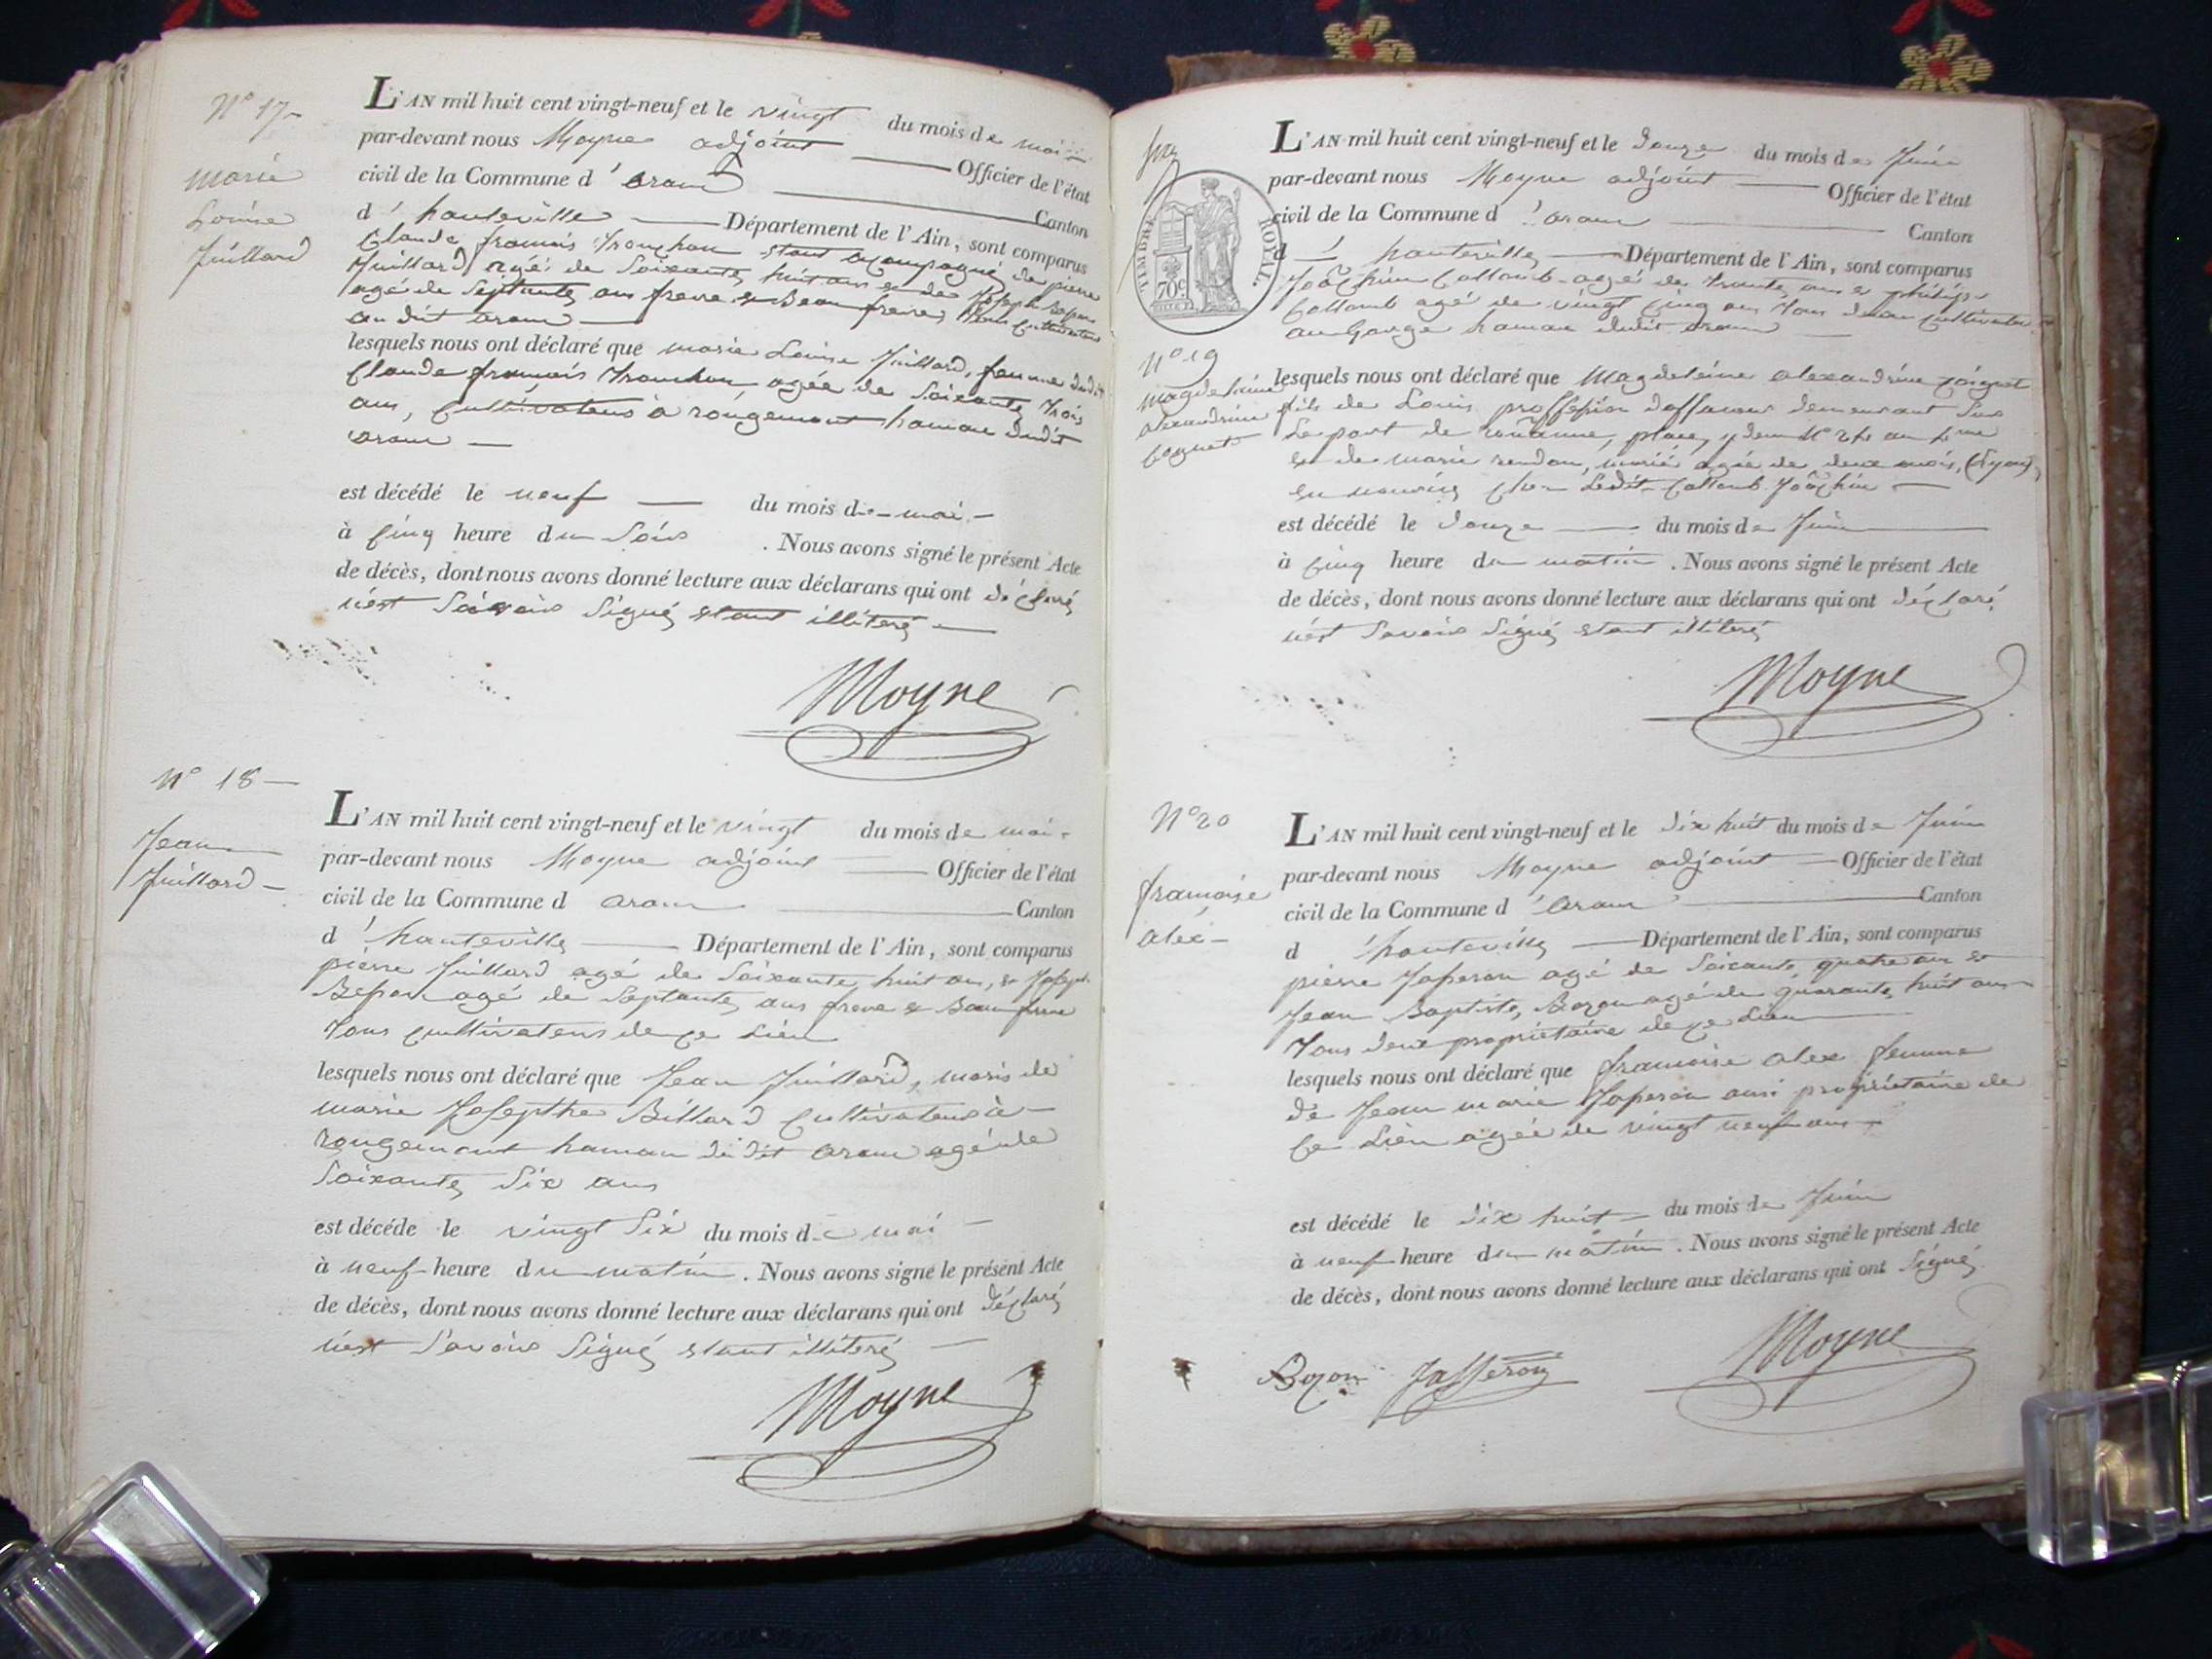 N.° 17
marie
Louise
Juillard
L'AN mil huit cent vingt-neuf et le vingt du mois de mai
par-devant nous Moyne adjoint Officier de l'état
civil de la Commune d' aranc Canton
d' hauteville Département de l'Ain, sont comparus
Claude françois Tronchon etant acompagné de pierre
Juillard agé de Soixante huit ans et de Joseph
agé de Septante ans frere & Beau frere, tous cultivateurs
au dit aranc
lesquels nous ont déclaré que marie Louise Juillard, femme dudit
Claude francois Tronchon agée de Soixante Trois
ans, cultivateurs à rougemont hamau dudit
aranc
est décédé le neuf du mois de mai
à cinq heure du Soir . Nous avons signé le présent Acte
de décès, dont nous avons donné lecture aux déclarans qui ont déclaré
n'est Savoir Signé etant illiteré
Moyne
N° 18
Jean
Juillard
L'AN mil huit cent vingt-neuf et le vingt du mois de mai
par-devant nous Moyne adjoint Officier de l'état
civil de la Commune d aranc Canton
d' hauteville Département de l'Ain, sont comparus
pierre Juillard agé de Soixante huit ans, & Joseph
agé de Septante ans frere & Beau frere
Tous cultivateurs de ce Lieu
lesquels nous ont déclaré que Jean Juillard, maris de
marie Josepthe Billard cultivateur à
rougemont hamau du dit aranc agé de
Soixante Six ans
est décéde le vingt Six du mois de mai
à neuf heure du matin . Nous avons signé le présent Acte
de décès, dont nous avons donné lecture aux déclarans qui ont déclaré
n'est Savoir Signé etant illiteré
Moyne
TIMBRE ROYAL
70c
L'AN mil huit cent vingt-neuf et le douze du mois de Juin
par-devant nous Moyne adjoint Officier de l'état
civil de la Commune d' aranc Canton
d' hauteville Département de l'Ain, sont comparus
Joâchim Collomb agé de trente ans & philips
Collomb agé de vingt cinq ans tous deux cultivateurs
au Gorge hamau dudit aranc
N° 19
magdeleine
alexandrine
Coignet
lesquels nous ont déclaré que Magdeleine alexandrine Coignet
fils de Louis proffession demeurant Sur
Le port de roüanne, place, ydem N° au 4me
et de marie agée de deux mois, (Lyon),
en nourice chez Ledit Collomb Joâchim
est décédé le douze du mois de Juin
à cinq heure du matin . Nous avons signé le présent Acte
de décès, dont nous avons donné lecture aux déclarans qui ont déclaré
n'est Savoir Signé etant illiteré
Moyne
N° 20
francoise
alex
L'AN mil huit cent vingt-neuf et le dix huit du mois de Juin
par-devant nous Moyne adjoint Officier de l'état
civil de la Commune d' aranc Canton
d' hauteville Département de l'Ain, sont comparus
pierre Joperon agé de Soixante quatre ans et
Jean Baptiste Bozon agé de quarante huit ans
Tous deux propriétaire de ce Lieu
lesquels nous ont déclaré que francoise alex femme
de Jean marie Joperon ausi propriétaire de
Ce Lieu agée de vingt neuf ans
est décédé le dix huit du mois de Juin
à neuf heure du matin . Nous avons signé le présent Acte
de décès, dont nous avons donné lecture aux déclarans qui ont Signé
Bozon Jasseron Moyne